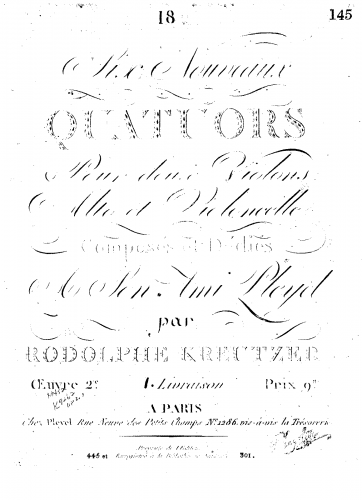 18
145
Six Nouveaux
QUATUORS
Pour deux Violons
Alto et Violoncelle
Composés et Dédiés
A Son Ami Pleyel
par
RODOLPHE KREUTZER
Œuvre 2e 1. Livraison Prix 9tt
A PARIS
Chez Pleyel Rue Neuve des Petits Champs No. 1286. vis-à-vis la Trésorerie
Propriété de l'Editeur
445 et Enregistré à la Bibliothèque Nationale 301.